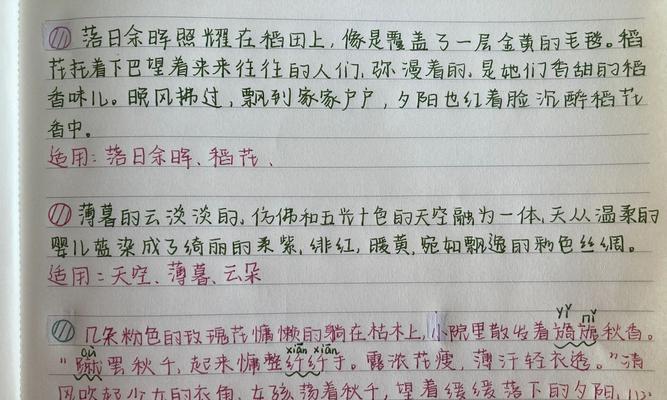 落日余晖照耀在稻田上，像是覆盖了一层金黄的毛毯。稻
花托着下巴望着来来往往的人们，弥漫着的，是她们香甜的稻
香味儿。晚风拂过，飘到家家户户，夕阳也红着脸沉醉稻花
香中。
适用：落日余晖、稻花、
薄暮的云淡淡的，仿佛和五光十色的天空融为一体，天从温柔的
婴儿蓝染成了绮丽的柔紫，绯红，暖黄，宛如飘逸的彩色丝绸。
适用：天空、薄暮、云朵
几朵粉色的玫瑰花慵懒的躺在枯木上，小院里散发着旖旎秋香。
yǐ nǐ
"蹴罢秋千，起来慵整纤纤手。露浓花瘦，薄汗轻衣透。"清
xiān xiān
风吹起少女的衣角，女孩荡着秋千，望着缓缓落下的夕阳，